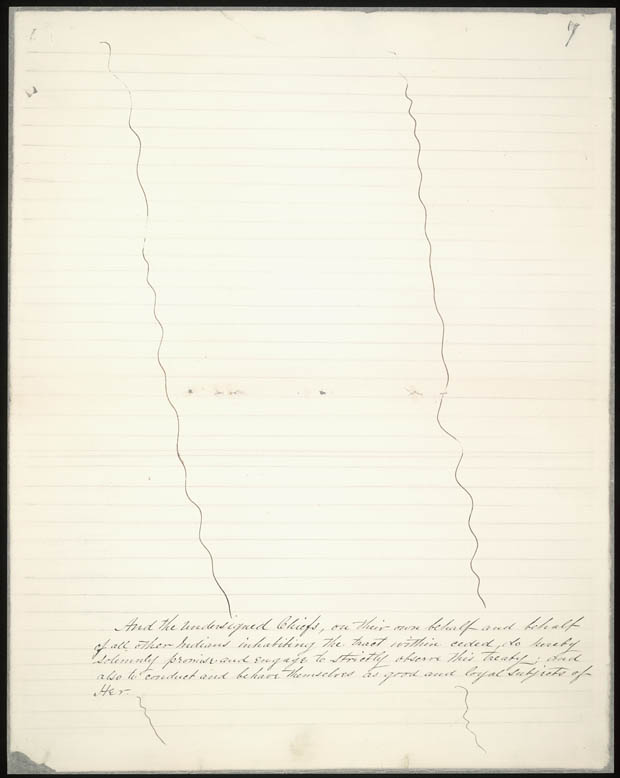 7
And the undersigned Chiefs, on their own behalf and behalf
of all other Indians inhabiting the tract within ceded, do hereby
solemnly promise and engage to strictly observe this treaty; and
also to conduct and behave themselves as good and loyal subjects of
Her.